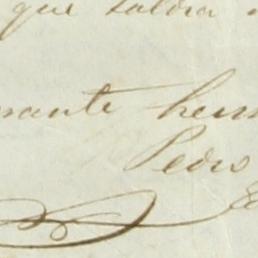 que saldra
mante herm
Pedro